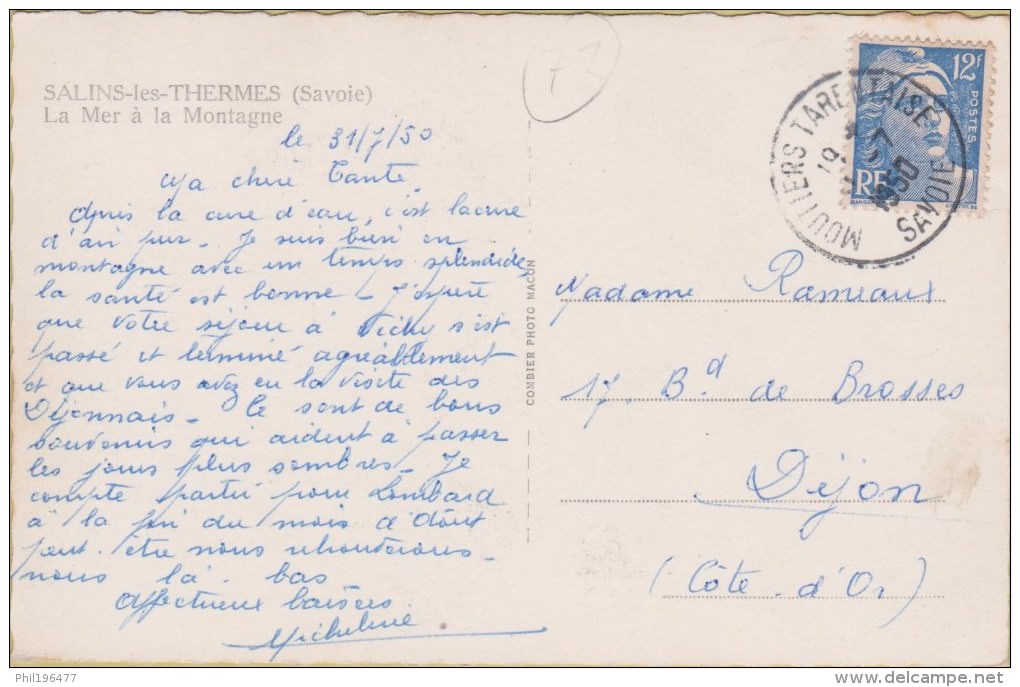 73
SALINS-les-THERMES (Savoie)
La Mer à la Montagne
le 31/7/50
Ma chère Tante
Après la cure d'eau, c'est la cure
d'air pur - Je suis bien en
montagne avec un temps splendide
la santé est bonne - J'espère
que votre séjour à Vichy s'est
passé et terminé agréablement
et que vous avez eu la visite des
Dijonnais - Ce sont de bons
souvenirs qui aident à passer
les jours plus sombres - Je
compte partir pour Lombard
à la fin du mois d'Août
peut-être nous retrouverons-
nous là-bas
Affectueux baisers
Micheline
COMBIER PHOTO MACON
12F
POSTES
RF
MOUTIERS TARENTAISE
SAVOIE
1950
Madame Rameaux
17, Bd de Brosses
Dijon
(Côte d'Or)
Phil196477
delcampe.net